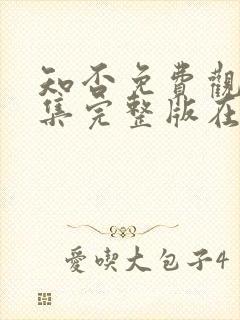 知否免費觀
集完整版在
愛喫大包子4